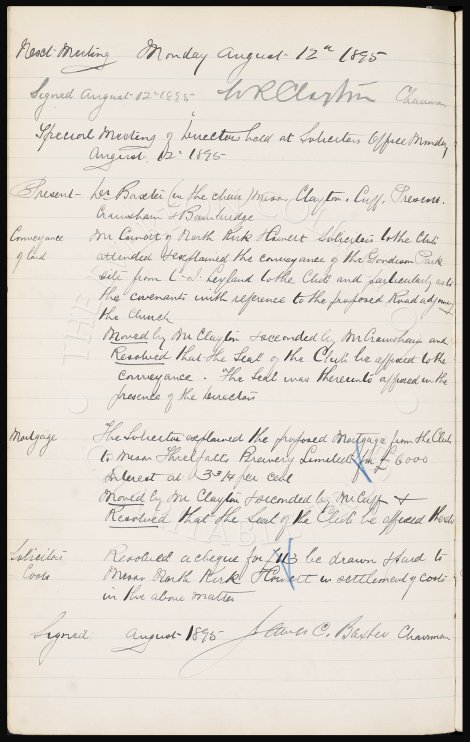 Next Meeting Monday August 12th 1895
Signed August 12th 1895 W R Clayton Chairman
Special Meeting of Directors held at Solicitors Office Monday
August 12th 1895
Present - Dr Baxter (in the chair) Messrs Clayton, Cuff, Prescott,
Crawshaw & Bainbridge
Conveyance of land
Mr of North Kirk & Howett Solicitors to the Club
attended & explained the conveyance of the Goodison Park
site from C. J. Leyland to the Club and particularly as to
the covenants with reference to the proposed Road adjoining
the Church
Moved by Mr Clayton & seconded by Mr Crawshaw and
Resolved that the Seal of the Club be affixed to the
conveyance. The Seal was thereunto affixed in the
presence of the Directors
Mortgage
The Solicitor explained the proposed Mortgage from the Club
to Messrs Threlfalls Brewery Limited for £6000
Interest at 3 3/4 per cent
Moved by Mr Clayton & seconded by Mr Cuff &
Resolved that the Seal of the Club be affixed thereto
Solicitors Costs
Resolved a cheque for £113 be drawn & paid to
Messrs North Kirk & Howett in settlement of costs
in the above matter
Signed August 1895 James C. Baxter Chairman